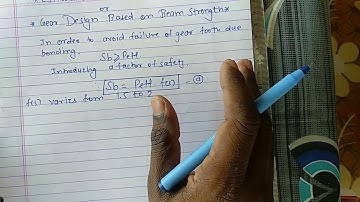 or
* Gear Design Based on Beam Strength *
In order to avoid failure of gear tooth due
bending.
Sb ≥ Peff
Introducing a factor of safety.
[Sb = Peff f(s)] - (a)
f(s) varies from 1.5 to 2